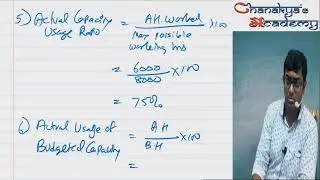 5) Actual Capacity Usage Ratio = AH Worked / Max possible working hrs × 100
= 6000 / 8000 × 100
= 75%
6) Actual Usage of Budgeted Capacity = AH / BH × 100
=
Chanakya's
Academy